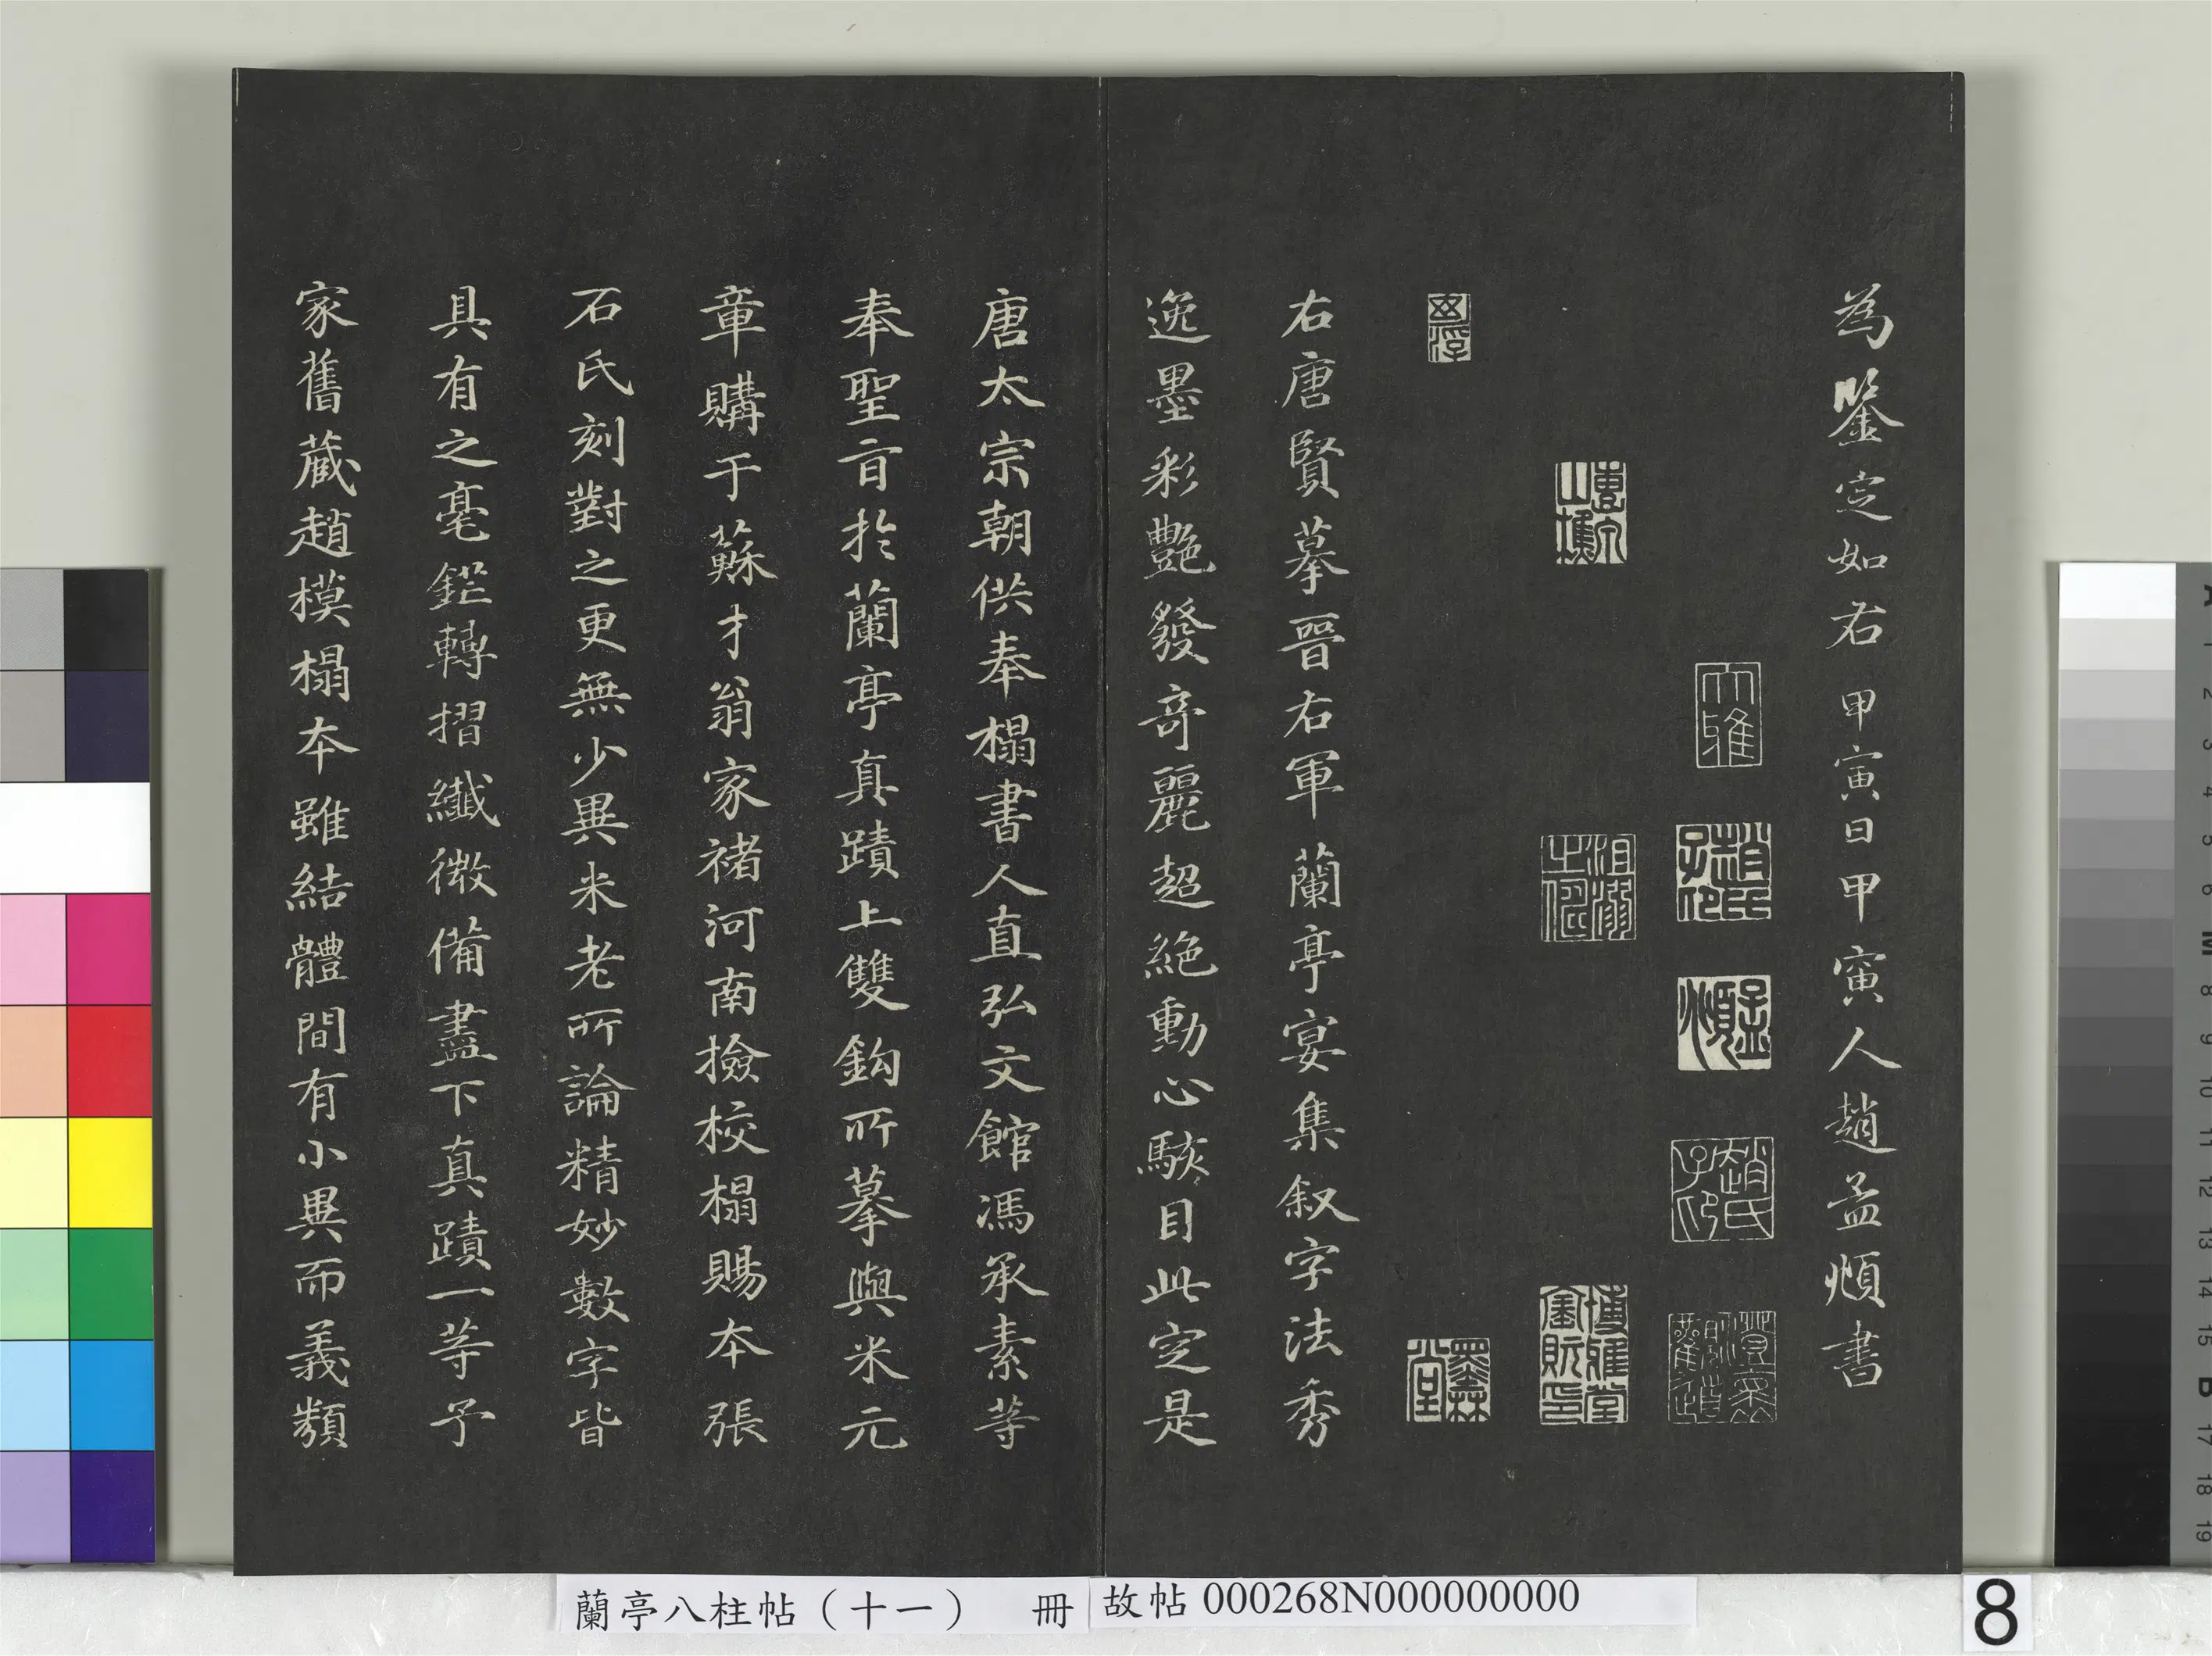 為鑒定如右甲寅日甲寅人趙孟頫書
大雅
趙氏子印
孟頫
趙氏子卬
澄懷觀道
博雅堂寶玩印
墨林堂
右唐賢摹晉右軍蘭亭宴集叙字法秀
逸墨彩艷發奇麗超絶動心駭目此定是
唐太宗朝供奉榻書人直弘文館馮承素等
奉聖旨於蘭亭真蹟上雙鈎所摹與米元
章購于蘇才翁家禇河南撿校榻賜本張
石氏刻對之更無少異米老所論精妙數字皆
具有之毫鋩轉摺纖微備盡下真蹟一等予
家舊蔵趙模榻本雖結體間有小異而義類
蘭亭八柱帖（十一） 冊
故帖 000268N000000000
8